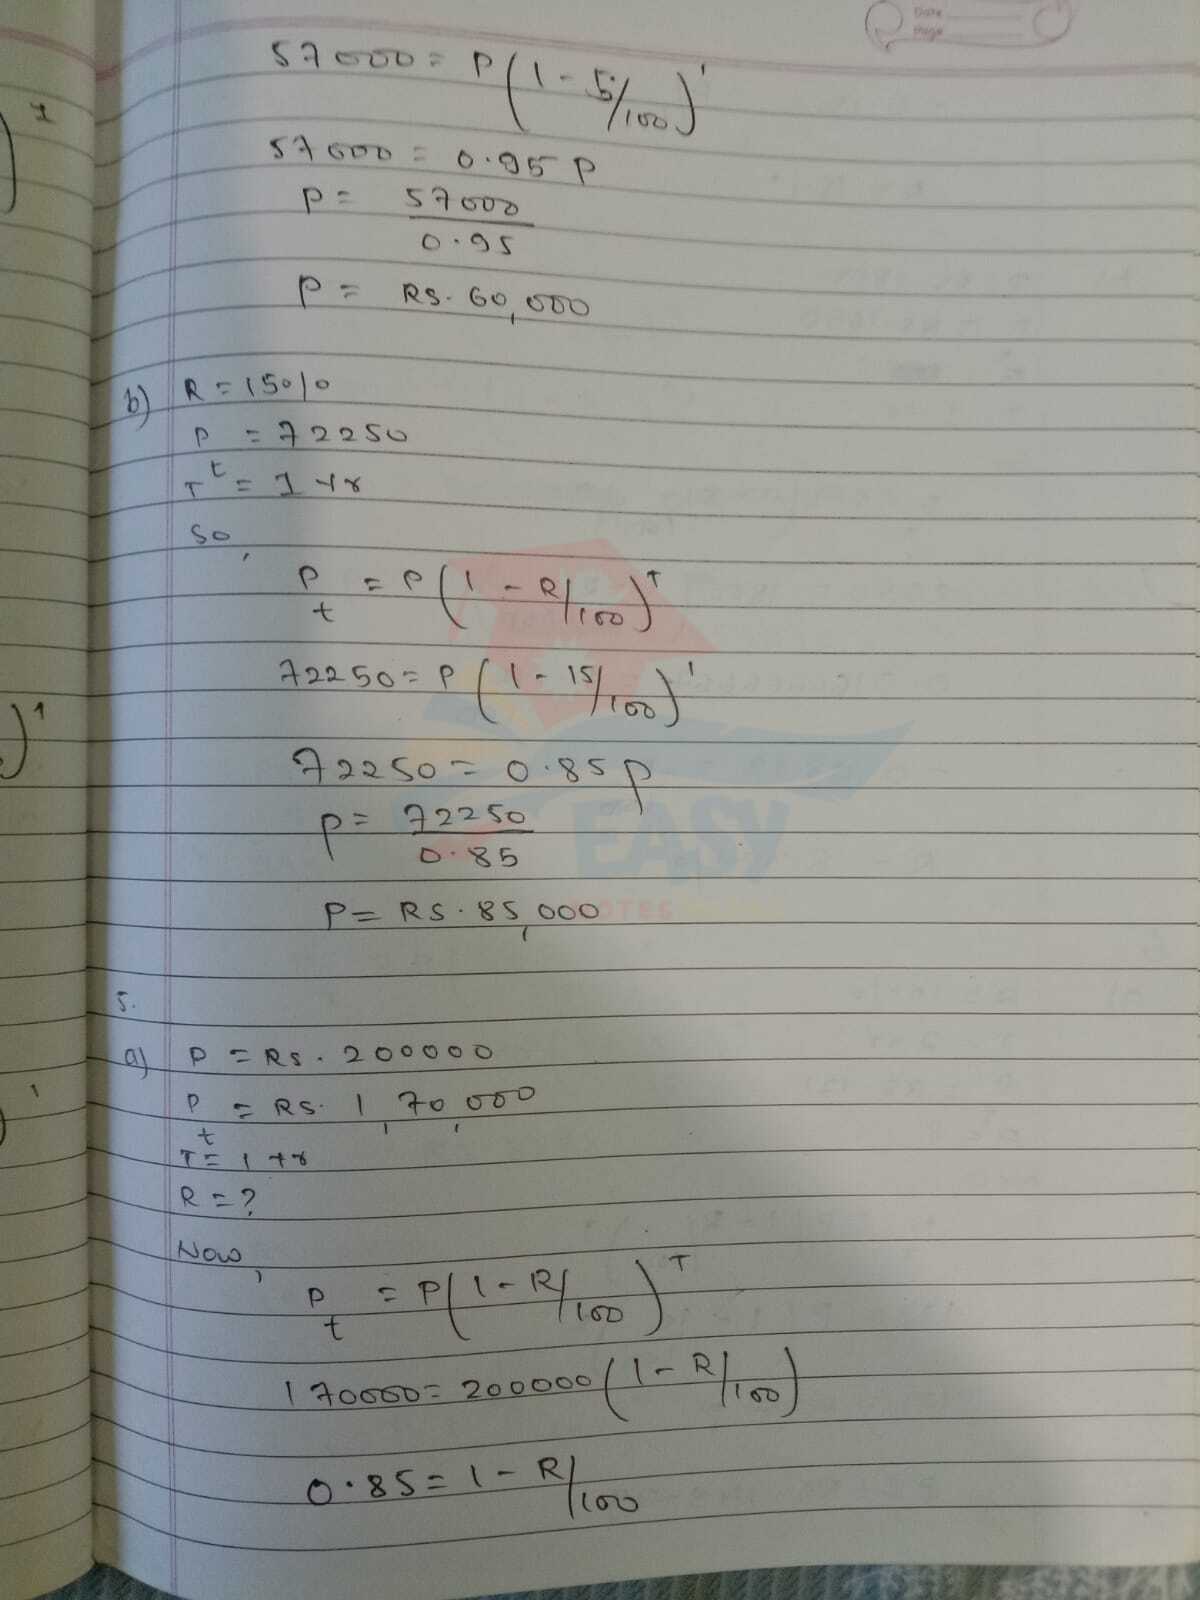 Date
Page
57000 = P(1 - 5/100)¹
57000 = 0.95 P
P = 57000
0.95
P = RS. 60,000
b) R = 15%
Pt = 72250
T = 1 yr
so,
Pt = P(1 - R/100)ᵀ
72250 = P(1 - 15/100)¹
72250 = 0.85 P
P = 72250
0.85
EASY
NOTES
P = RS. 85,000
5.
a) P = Rs. 200000
Pt = RS. 1,70,000
T = 1 yr
R = ?
Now,
Pt = P(1 - R/100)ᵀ
170000 = 200000(1 - R/100)
0.85 = 1 - R/100